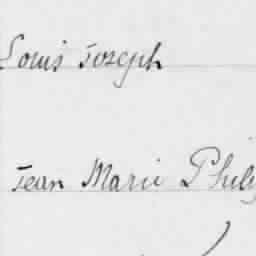 Louis Joseph
Jean Marie Phil